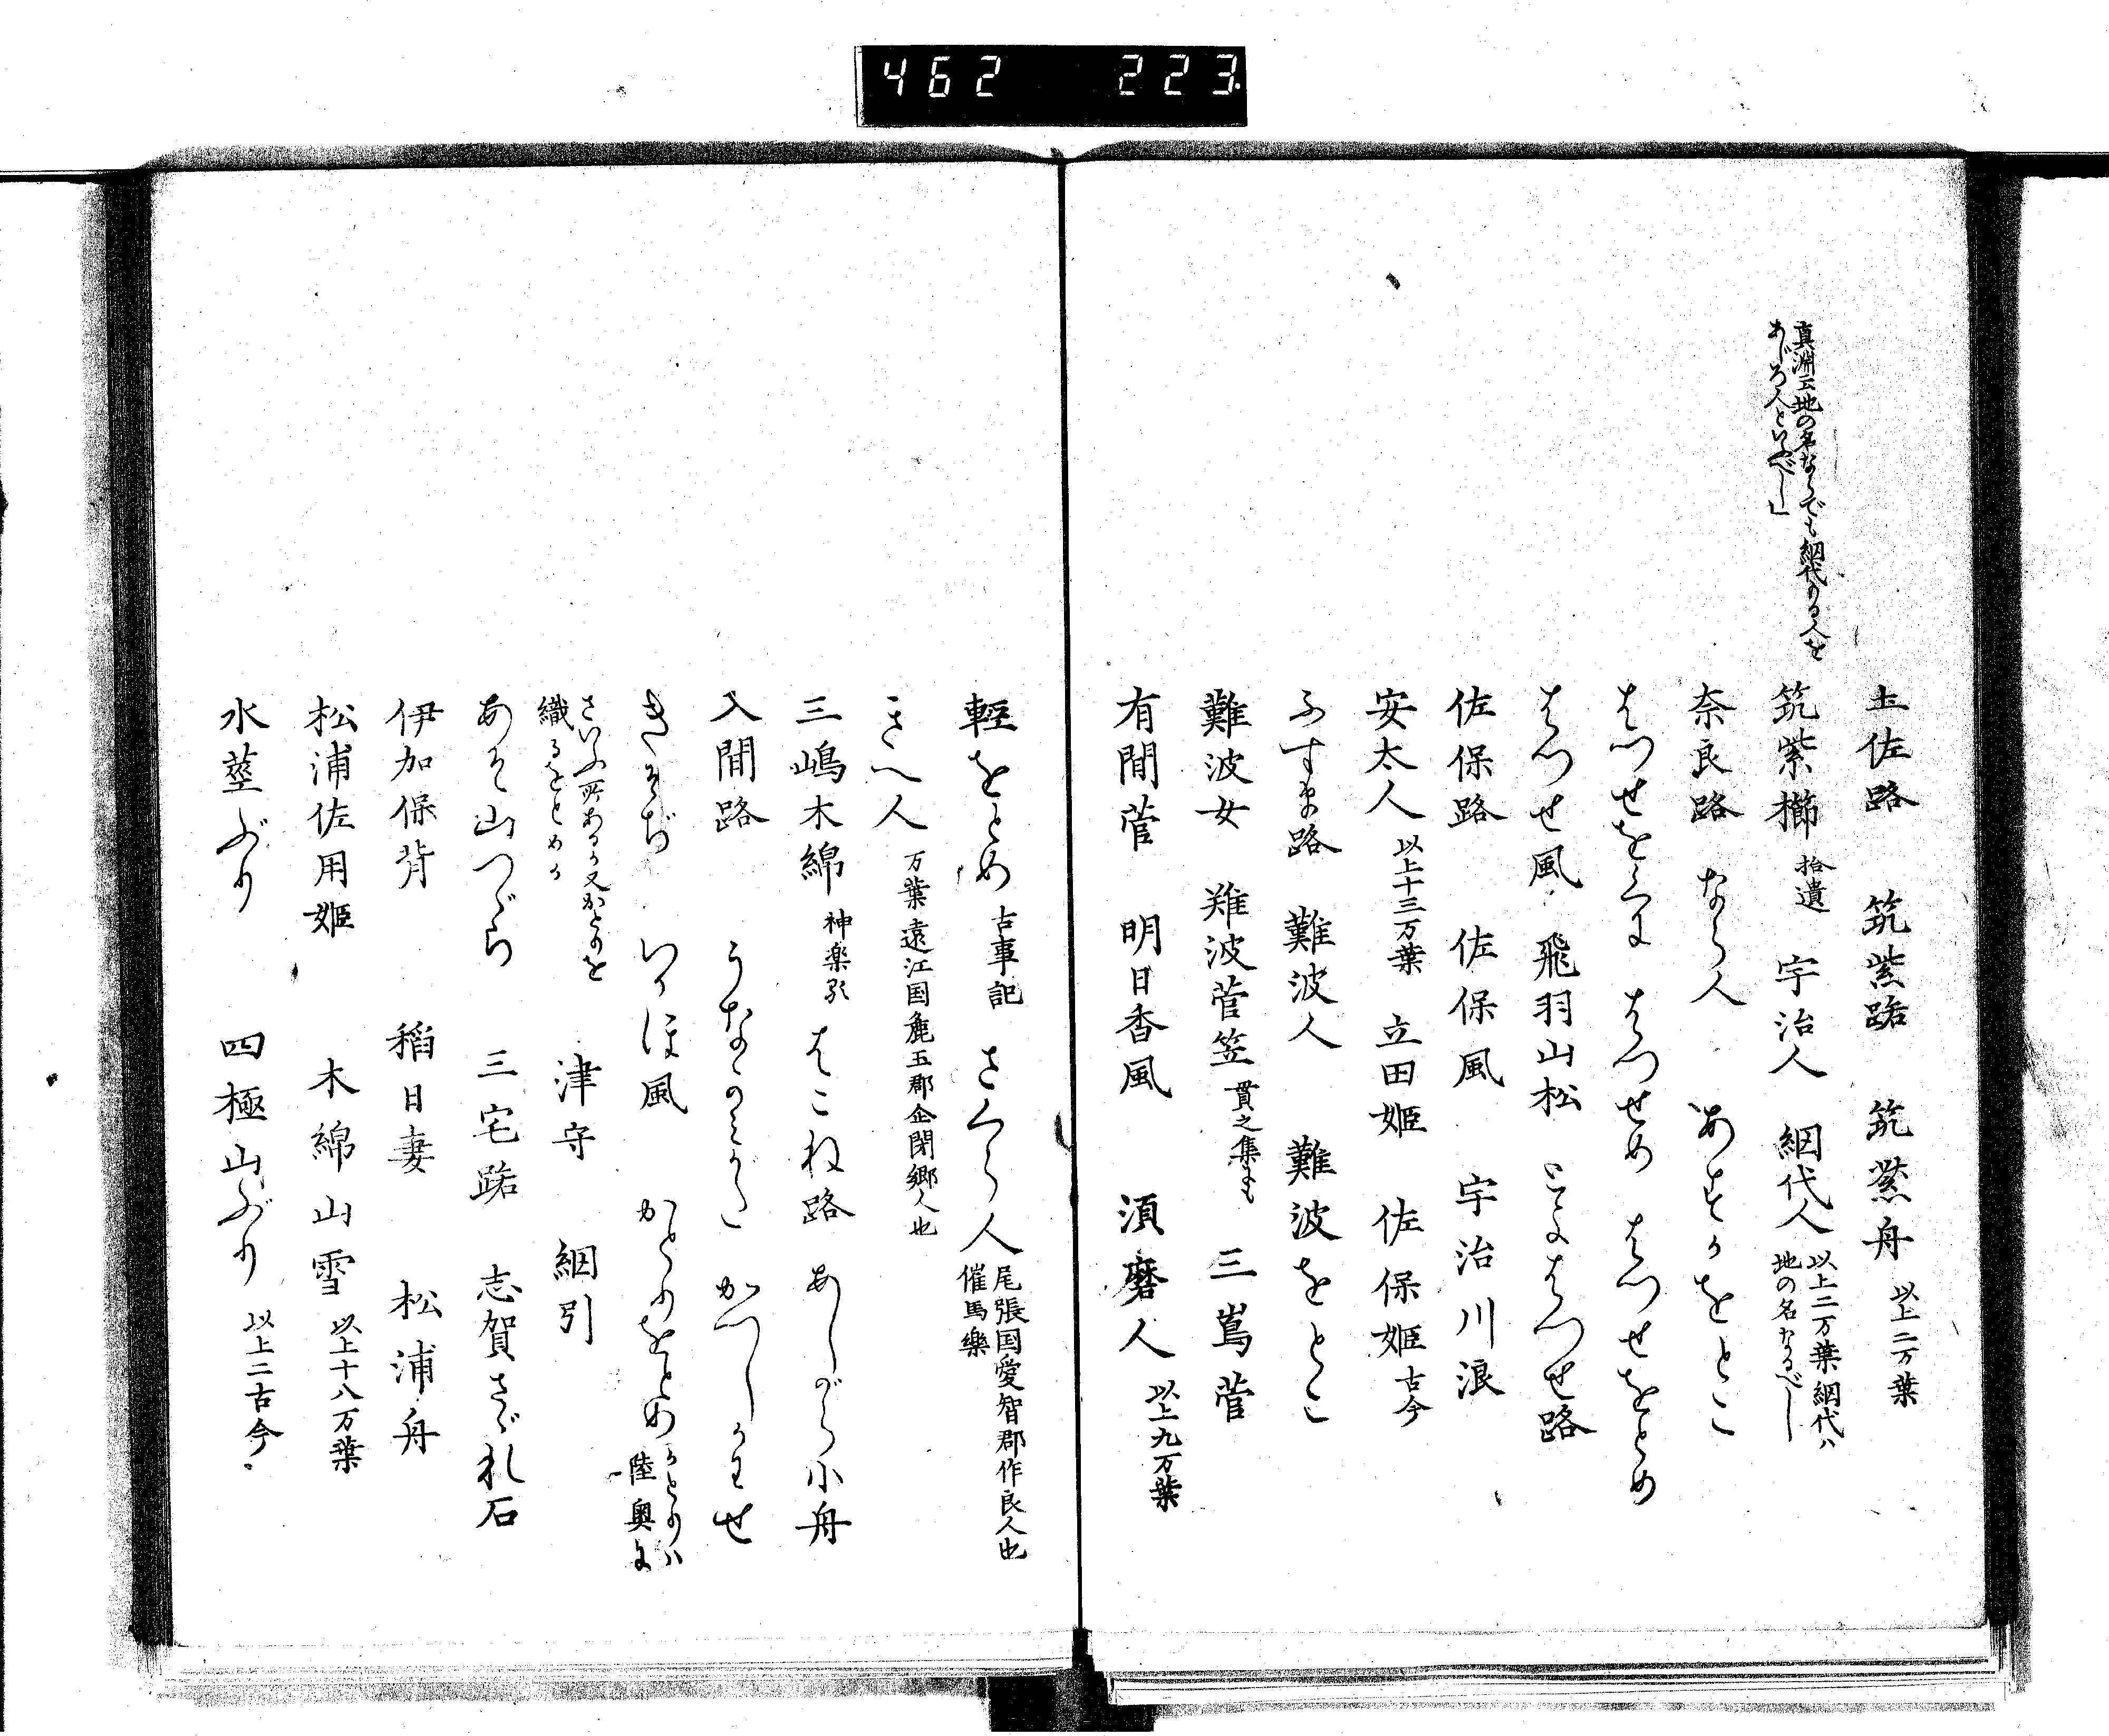 462 223
真淵云地の名ならでも網代もる人を
あじろ人といふべし」
土佐路 筑紫路 筑紫舟 以上二万葉
筑紫櫛 拾遺 宇治人 網代人 以上二万葉網代ハ
地の名なるべし
奈良路 なら人 あすかをとこ
はつせをくに はつせめ はつせをとめ
はつせ風 飛羽山松 とよはつせ路
佐保路 佐保風 宇治川浪
安太人 以上十三万葉 立田姫 佐保姫 古今
ふすま路 難波人 難波をとこ
難波女 難波菅笠 貫之集にも 三嶌菅
有間菅 明日香風 須磨人 以上九万葉
輕をとめ 古事記 さくら人 尾張国愛智郡作良人也
催馬樂
きへ人 万葉遠江国麁玉郡企閇郷人也
三嶋木綿 神楽歌 はこね路 あしがら小舟
入間路 うなかみがた かつしかわせ
きそぢ いかほ風 かとりをとめ かとりハ
陸奥に
さいふ所あるか又かとりを
織るをとめか 津守 網引
あそ山つゞら 三宅路 志賀さゞれ石
伊加保背 稻日妻 松浦舟
松浦佐用姫 木綿山雪 以上十八万葉
水莖ぶり 四極山ぶり 以上二古今